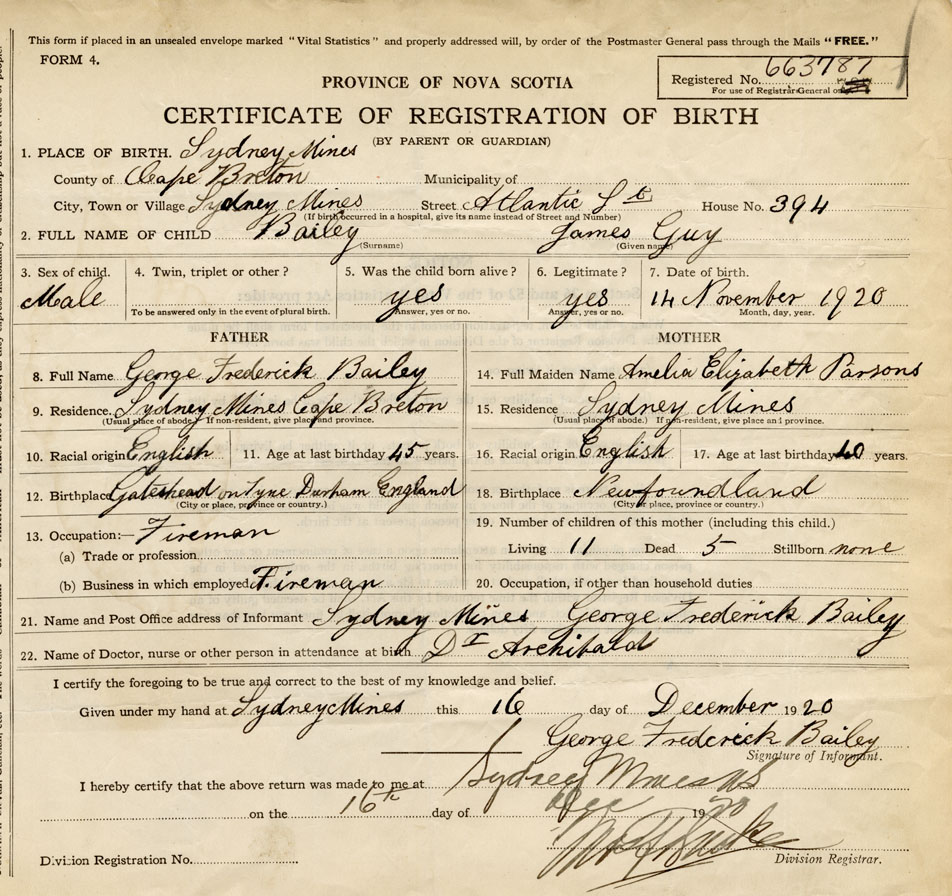 This form if placed in an unsealed envelope marked "Vital Statistics" and properly addressed will, by order of the Postmaster General pass through the Mails "FREE."
FORM 4.
Registered No. 663787
For use of Registrar General only
PROVINCE OF NOVA SCOTIA
CERTIFICATE OF REGISTRATION OF BIRTH
(BY PARENT OR GUARDIAN)
1. PLACE OF BIRTH. Sydney Mines
County of Cape Breton Municipality of
City, Town or Village Sydney Mines Street Atlantic St. House No. 394
(If birth occurred in a hospital, give its name instead of Street and Number)
2. FULL NAME OF CHILD Bailey James Guy
(Surname) (Given name)
3. Sex of child. 4. Twin, triplet or other? 5. Was the child born alive? 6. Legitimate? 7. Date of birth.
Male yes yes 14 November 1920
To be answered only in the event of plural birth. Answer, yes or no. Answer, yes or no. Month, day, year.
FATHER MOTHER
8. Full Name George Frederick Bailey 14. Full Maiden Name Amelia Elizabeth Parsons
9. Residence. Sydney Mines Cape Breton 15. Residence Sydney Mines
(Usual place of abode.) If non-resident, give place and province. (Usual place of abode.) If non-resident, give place and province.
10. Racial origin English 11. Age at last birthday 45 years. 16. Racial origin English 17. Age at last birthday 40 years.
12. Birthplace Gateshead on Tyne Durham England 18. Birthplace Newfoundland
(City or place, province or country.) (City or place, province or country.)
13. Occupation:— Fireman 19. Number of children of this mother (including this child.)
(a) Trade or profession Living 11 Dead 5 Stillborn none
(b) Business in which employed Fireman 20. Occupation, if other than household duties
21. Name and Post Office address of Informant Sydney Mines George Frederick Bailey
22. Name of Doctor, nurse or other person in attendance at birth Dr Archibald
I certify the foregoing to be true and correct to the best of my knowledge and belief.
Given under my hand at Sydney Mines this 16 day of December 1920
George Frederick Bailey
Signature of Informant.
I hereby certify that the above return was made to me at Sydney Mines NS
on the 16th day of Dec 1920
Division Registration No. Division Registrar.